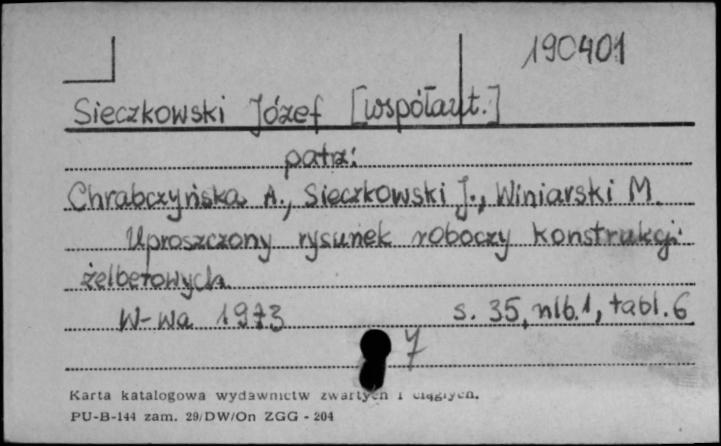 190401
Sieczkowski Józef [współaut.]
patrz:
Chrabczyńska A., Sieczkowski J., Winiarski M.
Uproszczony rysunek roboczy konstrukcji
żelbetowych
W-wa 1973 s. 35, nlb. 1, tabl. 6
7
Karta katalogowa wydawnictw zwartych i ciągłych.
PU-B-144 zam. 29/DW/On ZGG - 204